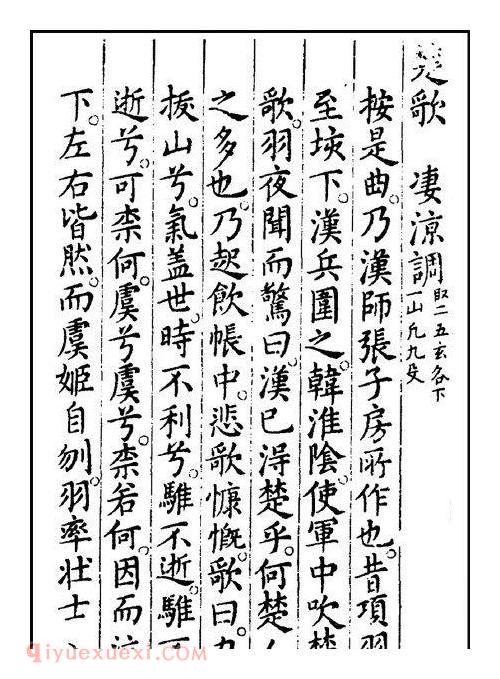 楚歌　凄凉調 取二五玄各下
一山凡九段
按是曲。乃漢師張子房所作也。昔項羽
至垓下。漢兵圍之。韓淮陰。使軍中吹楚
歌。羽夜聞而驚曰。漢已得楚乎。何楚人
之多也。乃起飲帳中。悲歌慷慨。歌曰。力
拔山兮。氣盖世。時不利兮。騅不逝。騅不
逝兮。可柰何。虞兮虞兮。柰若何。因而泣
下。左右皆然。而虞姬自刎。羽率壮士
qiyuexuexi.com